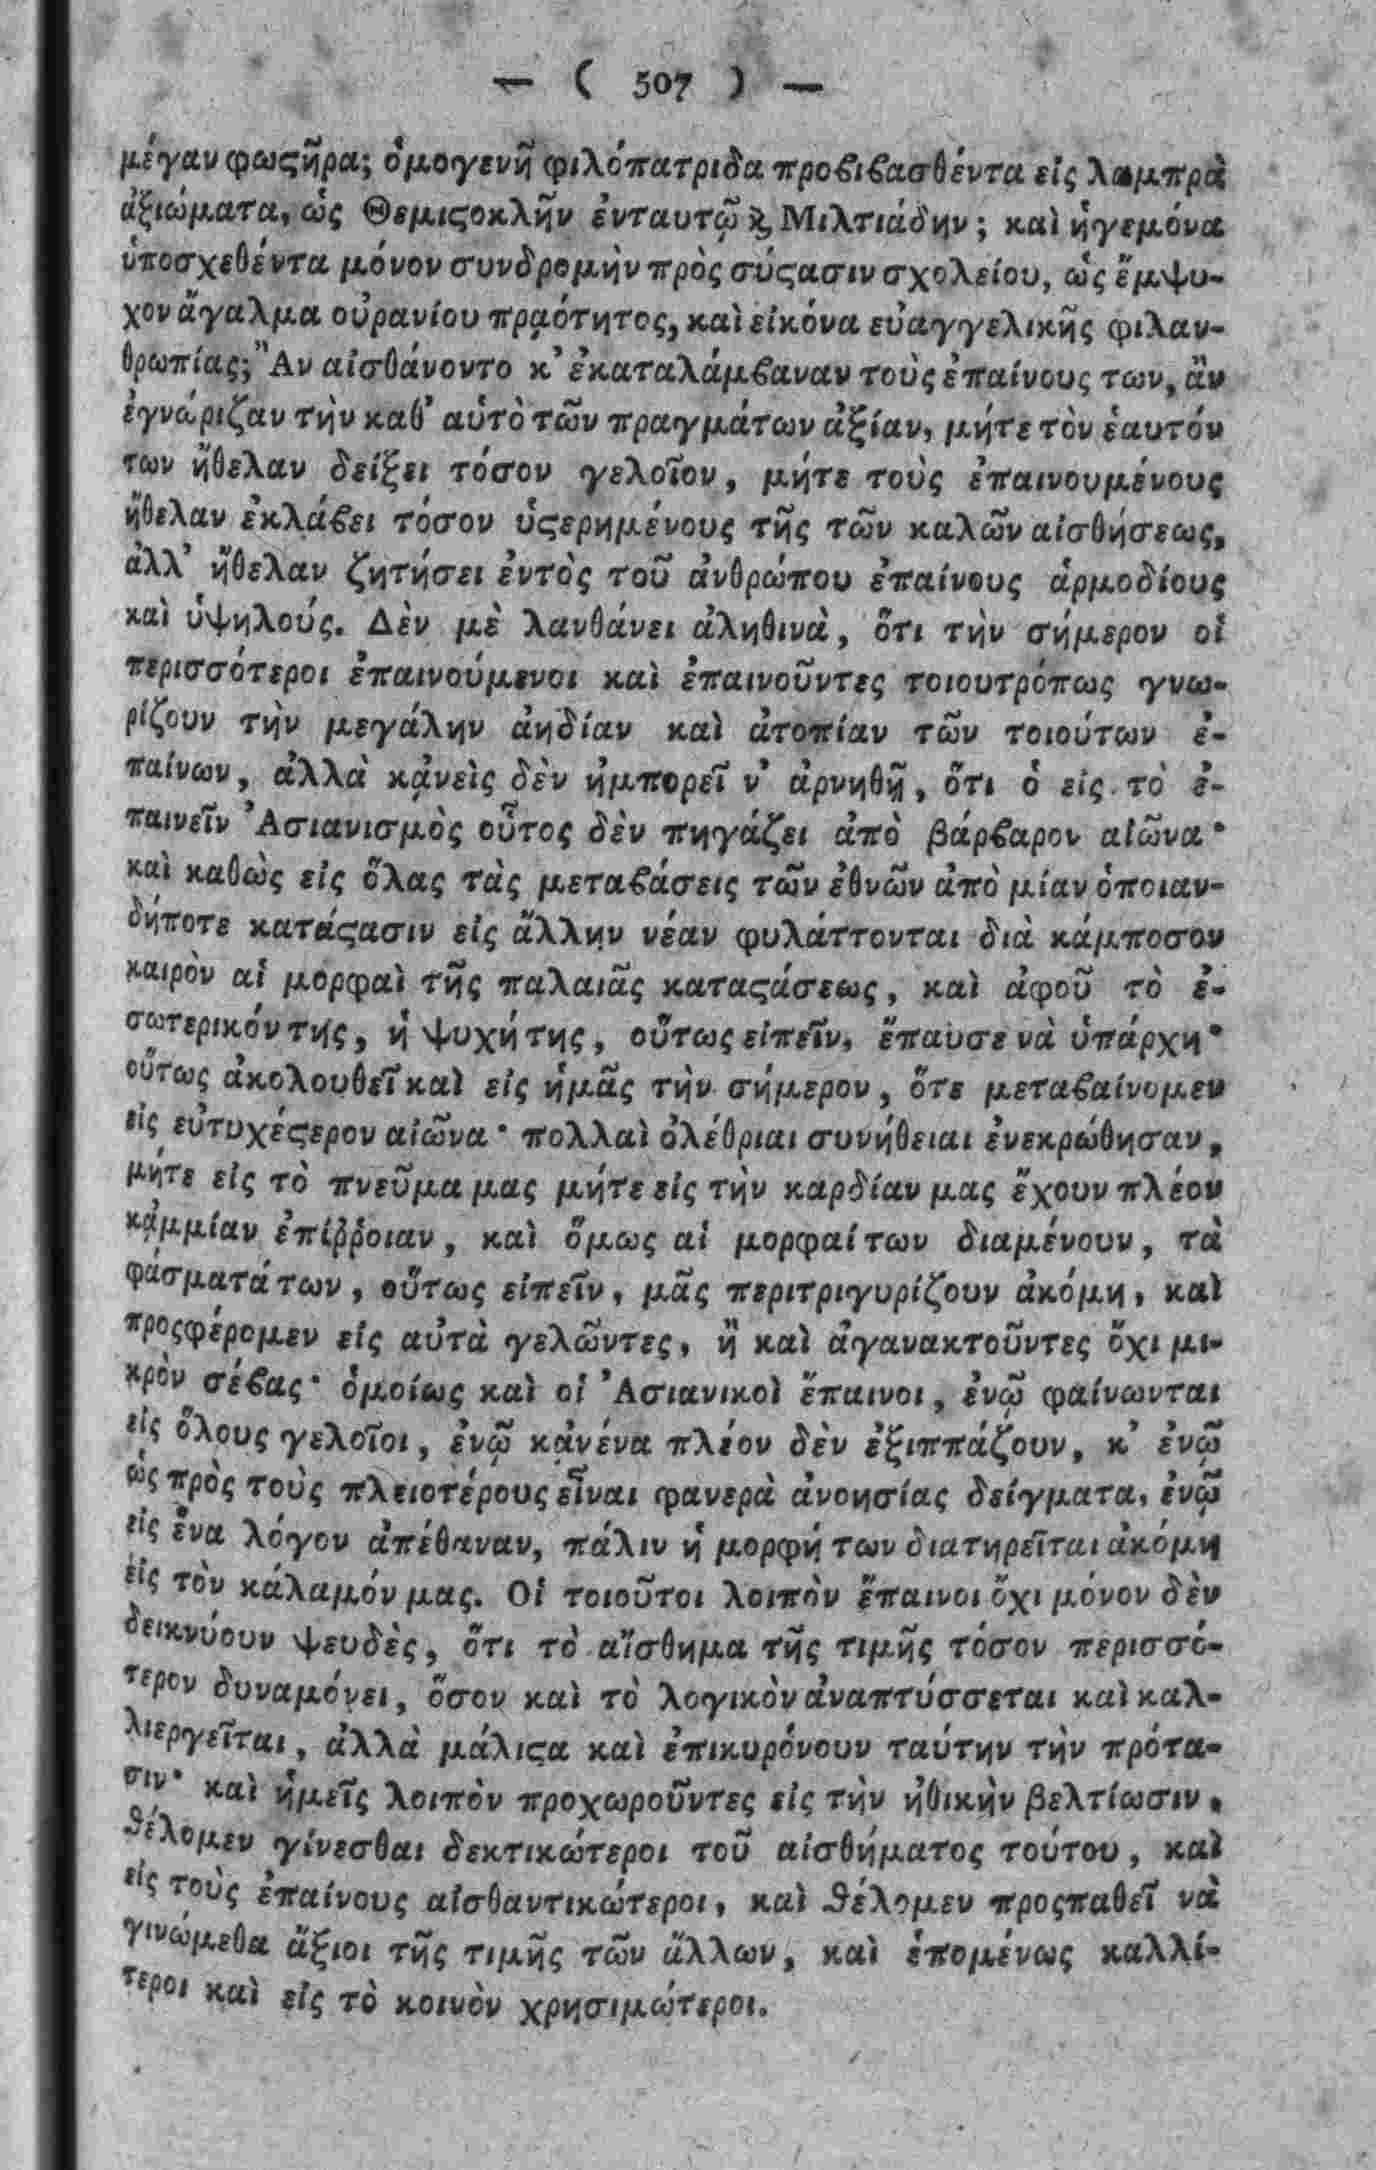 — ( 507 ) —
μέγαν φωϛῆρα; ὁμογενῆ φιλόπατριδα προβιβασθέντα εἰς λαμπρὰ
ἀξιώματα, ὡς Θεμιϛοκλῆν ἐνταυτῷ ϗ Μιλτιάδην; καὶ ἡγεμόνα
ὑποσχεθέντα μόνον συνδρομὴν πρὸς σύϛασιν σχολείου, ὡς ἔμψυ-
χον ἄγαλμα οὐρανίου πρᾳότητος, καὶ εἰκόνα εὐαγγελικῆς φιλαν-
θρωπίας; Ἂν αἰσθάνοντο κ’ ἐκαταλάμβαναν τοὺς ἐπαίνους των, ἂν
ἐγνώριζαν τὴν καθ’ αὑτὸ τῶν πραγμάτων ἀξίαν, μήτε τὸν ἑαυτόν
των ἤθελαν δείξει τόσον γελοῖον, μήτε τοὺς ἐπαινουμένους
ἤθελαν ἐκλάβει τόσον ὑϛερημένους τῆς τῶν καλῶν αἰσθήσεως,
ἀλλ’ ἤθελαν ζητήσει ἐντὸς τοῦ ἀνθρώπου ἐπαίνους ἁρμοδίους
καὶ ὑψηλούς. Δὲν μὲ λανθάνει ἀληθινὰ, ὅτι τὴν σήμερον οἱ
περισσότεροι ἐπαινούμενοι καὶ ἐπαινοῦντες τοιουτρόπως γνω-
ρίζουν τὴν μεγάλην ἀηδίαν καὶ ἀτοπίαν τῶν τοιούτων ἐ-
παίνων, ἀλλὰ κᾀνεὶς δὲν ἠμπορεῖ ν’ ἀρνηθῇ, ὅτι ὁ εἰς τὸ ἐ-
παινεῖν Ἀσιανισμὸς οὗτος δὲν πηγάζει ἀπὸ βάρβαρον αἰῶνα·
καὶ καθὼς εἰς ὅλας τὰς μεταβάσεις τῶν ἐθνῶν ἀπὸ μίαν ὁποιαν-
δήποτε κατάϛασιν εἰς ἄλλην νέαν φυλάττονται διὰ κάμποσον
καιρὸν αἱ μορφαὶ τῆς παλαιᾶς καταϛάσεως, καὶ ἀφοῦ τὸ ἐ-
σωτερικόν της, ἡ ψυχή της, οὕτως εἰπεῖν, ἔπαυσε νὰ ὑπάρχη·
οὕτως ἀκολουθεῖ καὶ εἰς ἡμᾶς τὴν σήμερον, ὅτε μεταβαίνομεν
εἰς εὐτυχέϛερον αἰῶνα· πολλαὶ ὀλέθριαι συνήθειαι ἐνεκρώθησαν,
μήτε εἰς τὸ πνεῦμα μας μήτε εἰς τὴν καρδίαν μας ἔχουν πλέον
κᾀμμίαν ἐπίῤῥοιαν, καὶ ὅμως αἱ μορφαί των διαμένουν, τὰ
φάσματά των, οὕτως εἰπεῖν, μᾶς περιτριγυρίζουν ἀκόμη, καὶ
προςφέρομεν εἰς αὐτὰ γελῶντες, ἢ καὶ ἀγανακτοῦντες ὄχι μι-
κρὸν σέβας· ὁμοίως καὶ οἱ Ἀσιανικοὶ ἔπαινοι, ἐνῷ φαίνωνται
εἰς ὅλους γελοῖοι, ἐνῷ κᾀνένα πλέον δὲν ἐξιππάζουν, κ’ ἐνῷ
ὡς πρὸς τοὺς πλειοτέρους εἶναι φανερὰ ἀνοησίας δείγματα, ἐνῷ
εἰς ἕνα λόγον ἀπέθαναν, πάλιν ἡ μορφή των διατηρεῖται ἀκόμη
εἰς τὸν κάλαμόν μας. Οἱ τοιοῦτοι λοιπὸν ἔπαινοι ὄχι μόνον δὲν
δεικνύουν ψευδὲς, ὅτι τὸ αἴσθημα τῆς τιμῆς τόσον περισσό-
τερον δυναμόνει, ὅσον καὶ τὸ λογικὸν ἀναπτύσσεται καὶ καλ-
λιεργεῖται, ἀλλὰ μάλιϛα καὶ ἐπικυρόνουν ταύτην τὴν πρότα-
σιν· καὶ ἡμεῖς λοιπὸν προχωροῦντες εἰς τὴν ἠθικὴν βελτίωσιν,
θέλομεν γίνεσθαι δεκτικώτεροι τοῦ αἰσθήματος τούτου, καὶ
εἰς τοὺς ἐπαίνους αἰσθαντικώτεροι, καὶ θέλομεν προςπαθεῖ νὰ
γινώμεθα ἄξιοι τῆς τιμῆς τῶν ἄλλων, καὶ ἑπομένως καλλί-
τεροι καὶ εἰς τὸ κοινὸν χρησιμώτεροι.